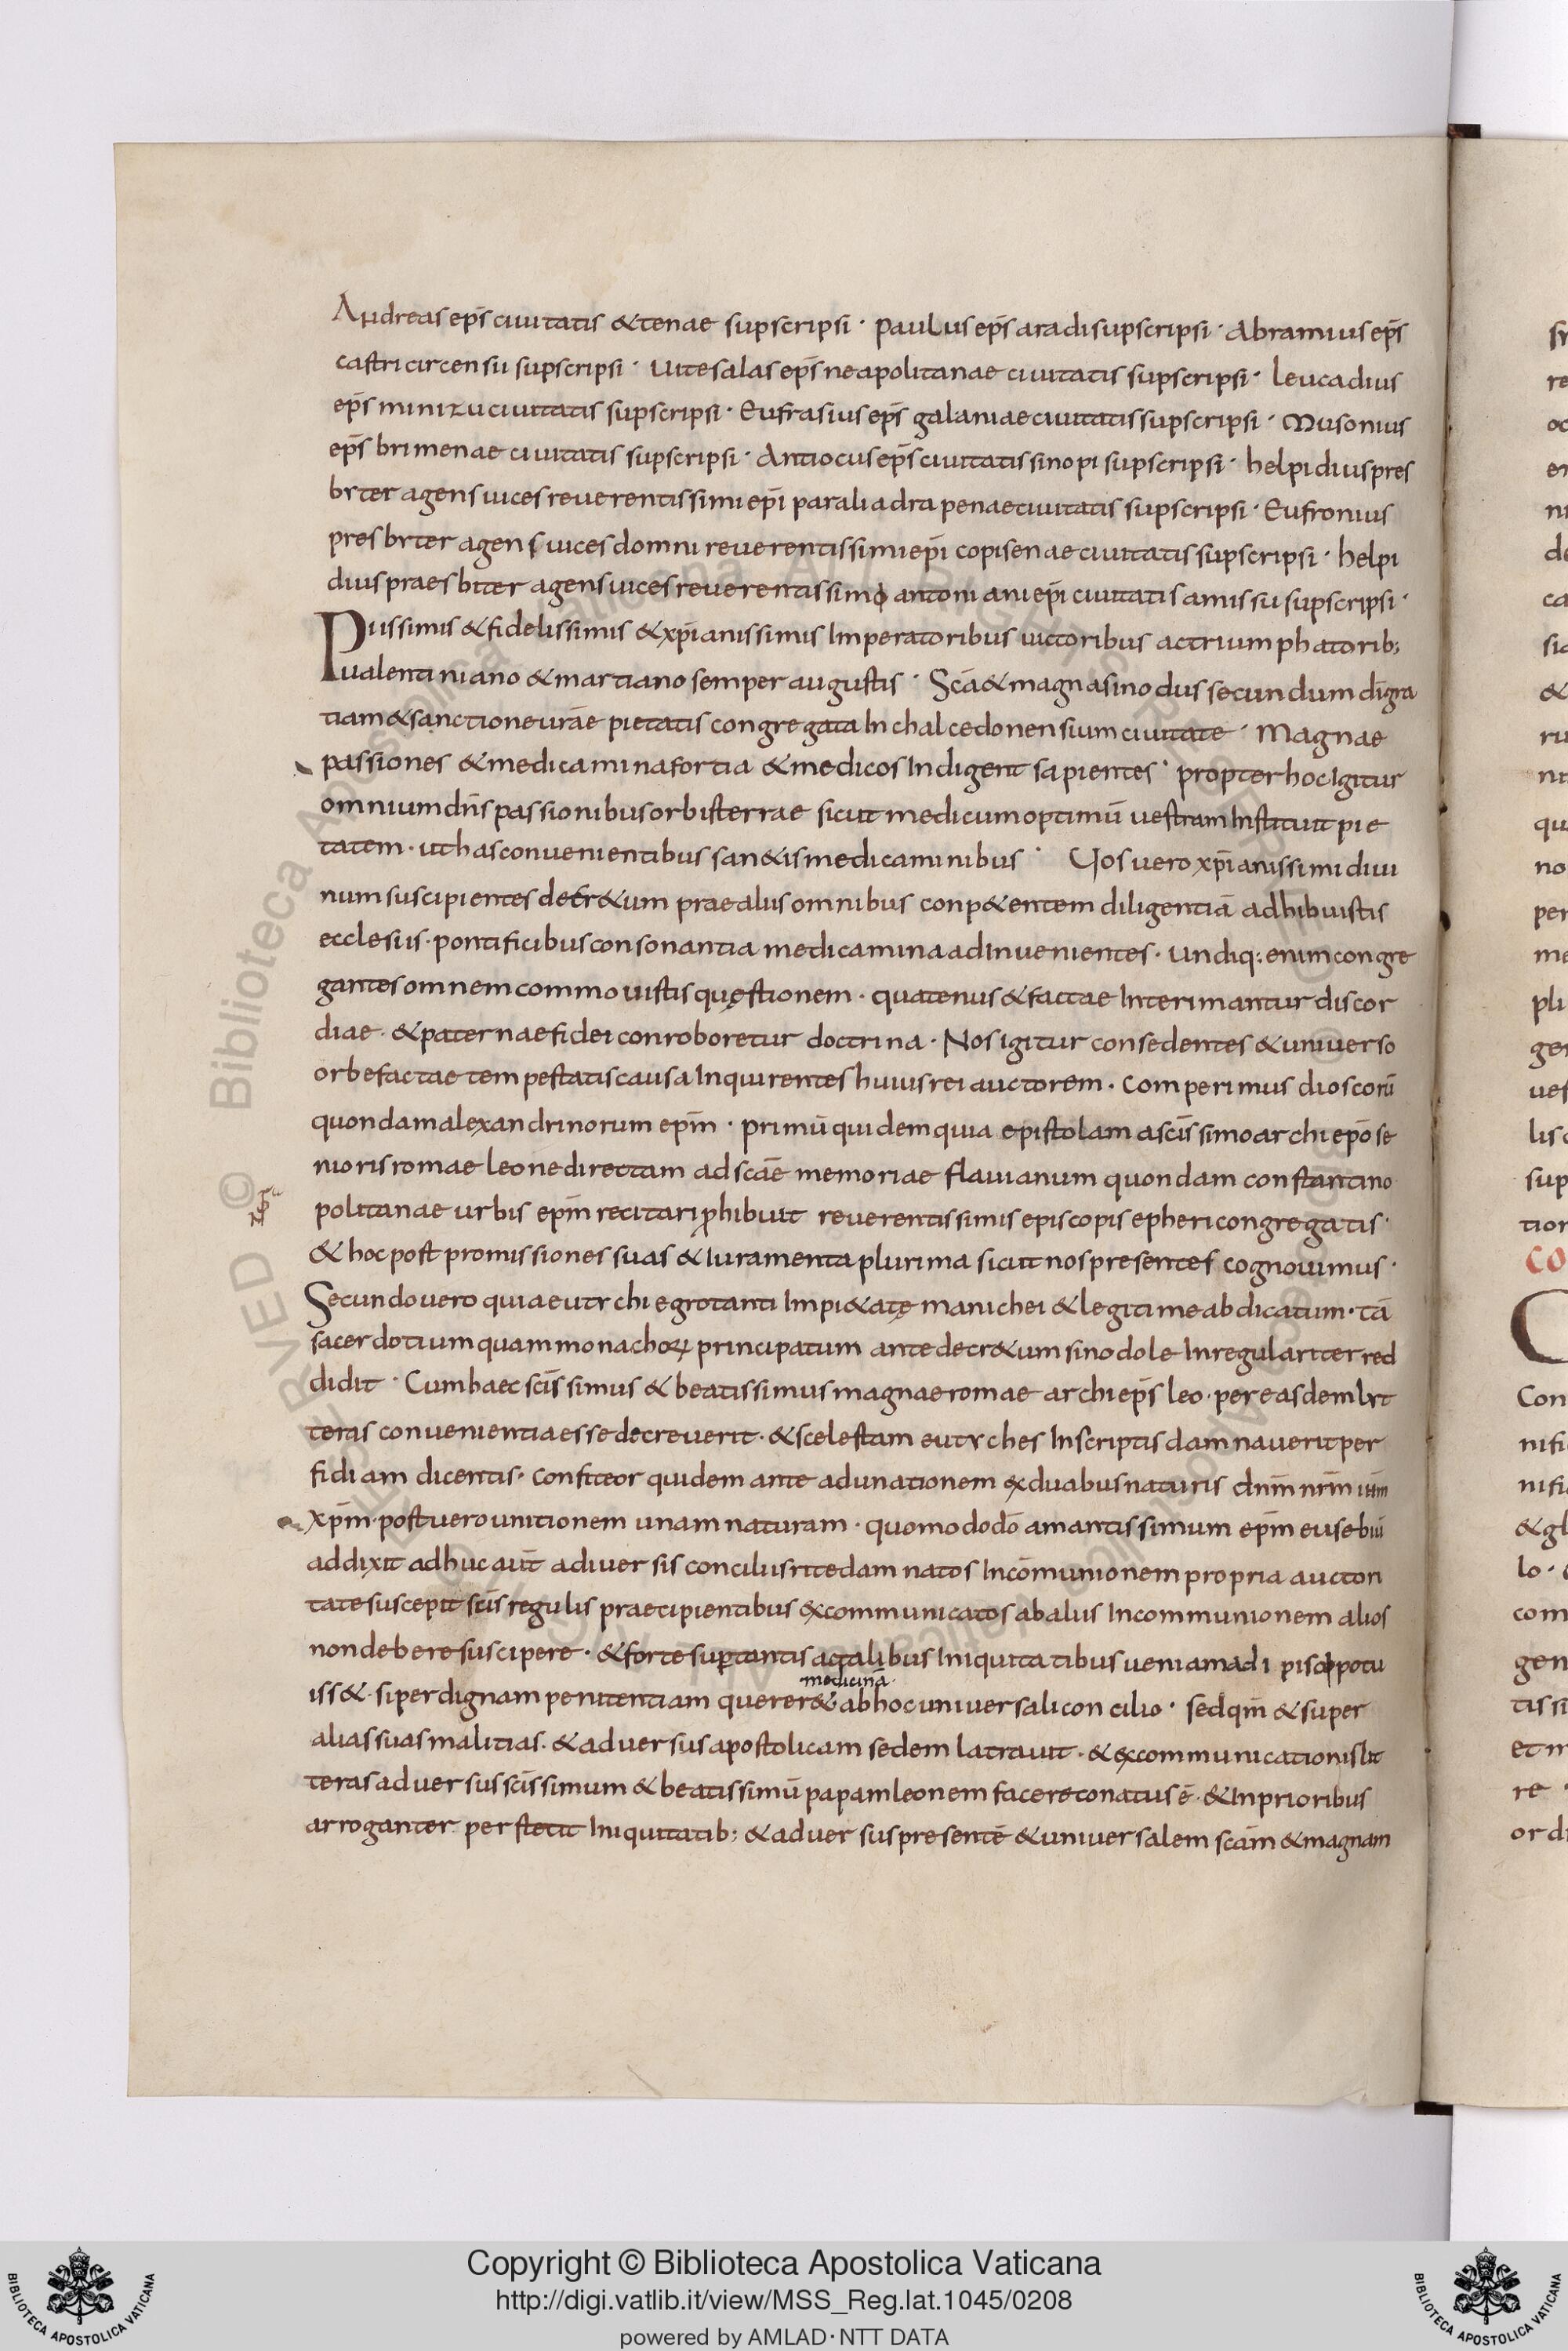 Andreas ep̄s ciuitatis &tenae supscripsi · paulus ep̄s aradi supscripsi · Abramius ep̄s
castri circensii supscripsi · Uitesalas ep̄s neapolitanae ciuitatis supscripsi · leucadius
ep̄s minizu ciuitatis supscripsi · Eufrasius ep̄s galaniae ciuitatis supscripsi · Musonius
ep̄s brimenae ciuitatis supscripsi · Antiocus ep̄s ciuitatis sinopi supscripsi · helpidius pres
brter agens uices reuerentissimi ep̄i parali adrapenae ciuitatis supscripsi · Eufronius
presbrter agens uices domni reuerentissimi ep̄i copisenae ciuitatis supscripsi · helpi
dius praesbiter agens uices reuerentissimo antoniani ep̄i ciuitatis amissu supscripsi ·
Piissimis & fidelissimis & xp̄ianissimis Imperatoribus uictoribus ac triumphatorib;
ualentiniano & martiano semper augustis · Sc̄a & magna sinodus secundum d̄i gra
tiam & sanctione ur̄ae pietatis congregata In chalcedonensium ciuitate · Magnae
passiones & medicamina fortia & medicos Indigent sapientes · propter hoc Igitur
omnium dn̄s passionibus orbis terrae sicut medicum optimū uestram Instituit pie
tatem · ut has conuenientibus san&is medicaminibus · Uos uero xp̄ianissimi diui
num suscipientes decr&um prae aliis omnibus conp&entem diligentiā adhibuistis
ecclesiis · pontificibus consonantia medicamina adInuenientes · Undiq; enim congre
gantes omnem commouistis quęstionem · quatenus & factae Interimantur discor
diae · & paternae fidei conroboretur doctrina · Nos igitur consedentes & uniuerso
orbe factae tempestatis causa Inquirentes huius rei auctorem · Comperimus dioscorū
quondam alexandrinorum ep̄m · primū quidem quia epistolam a sc̄issimo archiep̄o se
nioris romae leone directam ad sc̄ae memoriae flauianum quondam constantino
politanae urbis ep̄m recitari ꝓhibuit reuerentissimis episcopis epheri congregatis ·
& hoc post promissiones suas & Iuramenta plurima sicut nos presentes cognouimus ·
Secundo uero quia eutrchi egrotanti Impi&atę manichei & legitime abdicatum · tā
sacerdotium quam monachoꝝ principatum ante decr&um sinodole Inregulariter red
didit · Cum haec sc̄issimus & beatissimus magnae romae archiep̄s leo · per easdem lrt
teras conuenientia esse decreuerit · & scelestam eutrches In scriptis damnauerit per
fidiam dicentis · confiteor quidem ante adunationem ex duabus naturis dn̄m nr̄m ih̄m
xp̄m · post uero unitionem unam naturam · quomodo dō amantissimum ep̄m eusebiū
addixit adhuc aut̄ adiuersis conciliis rite damnatos In cōmunionem propria auctori
tate suscepit sc̄is regulis praecipientibus excommunicatos ab aliis In communionem alios
non debere suscipere · & forte suꝑ tantis ac talibus Iniquitatibus ueniam adipisci potu
iss& · si per dignam penitentiam querer& ab hoc uniuersali concilio · sed qm̄ & super
medicinā
alias suas malitias · & aduersus apostolicam sedem latrauit · & excommunicationis lit
teras aduersus sc̄issimum & beatissimū papam leonem facere conatus ē · & In prioribus
arroganter perstetit Iniquitatib; & aduersus presentē & uniuersalem sc̄am & magnam
Copyright © Biblioteca Apostolica Vaticana
http://digi.vatlib.it/view/MSS_Reg.lat.1045/0208
powered by AMLAD · NTT DATA
BIBLIOTECA APOSTOLICA VATICANA
BIBLIOTECA APOSTOLICA VATICANA